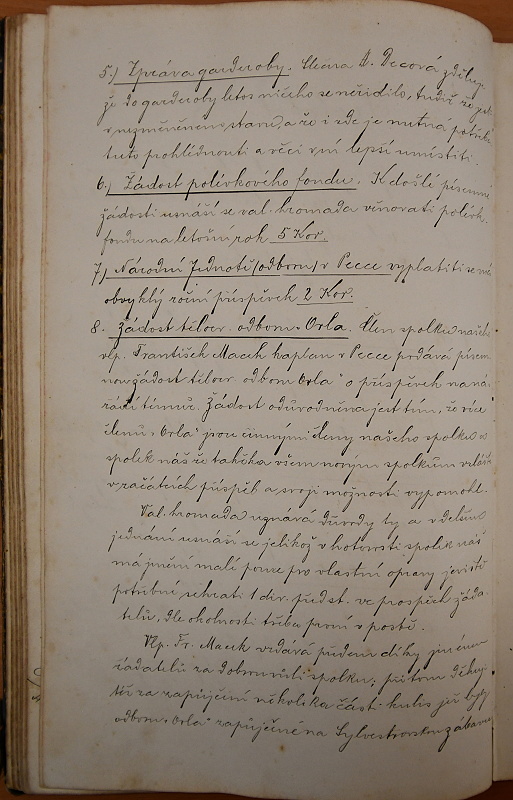 5.) Zpráva garderoby. Slečna A. Decová sděluje,
že do garderoby letos ničeho se neřídilo, tudíž že jest
v nezměněném stavu, a že i zde je nutná potřeba
tuto prohlédnouti a věci v ní lepší umístiti.
6.) Žádost polévkového fondu. K došlé písemné
žádosti usnáší se val. hromada věnovati polévk.
fondu na letošní rok 5 Kor.
7.) Národní Jednotě (odboru) v Pecce vyplatiti se má
obvyklý roční příspěvek 2 Kor.
8. Žádost tělocv. odboru „Orla. Člen spolku našeho
vlp. František Macek kaplan v Pecce podává písem-
nou žádost tělocv. odboru Orla" o příspěvek na ná-
řadí témuž. Žádost odůvodněna jest tím, že více
členů „Orla" jsou činnými členy našeho spolku a
spolek náš že takřka všem novým spolkům zvláště
v začátcích přispěl a svojí možností vypomohl.
Val. hromada uznává důvody ty a v delším
jednání usnáší se jelikož v hotovosti spolek náš
má jmění malé pouze pro vlastní opravy jeviště
potřebné, sehrati 1 div. předst. ve prospěch žáda-
telů, dle okolností třeba první v postě.
Vlp. Fr. Macek vzdává předem díky jménem
žadatelů za dobrou vůli spolku, přitom děkuje
též za zapůjčení několika částí kulis jež byly
odboru „Orla" zapůjčené na Sylvestrovskou zábavu